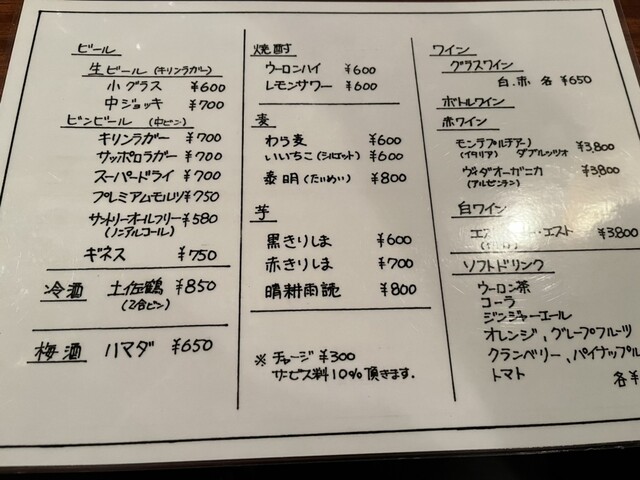 ビール
生ビール (キリンラガー)
小グラス ¥600
中ジョッキ ¥700
ビンビール (中ビン)
キリンラガー ¥700
サッポロラガー ¥700
スーパードライ ¥700
プレミアムモルツ ¥750
サントリーオールフリー ¥580
(ノンアルコール)
ギネス ¥750
冷酒 土佐鶴 ¥850
(2合ビン)
梅酒 ハマダ ¥650
焼酎
ウーロンハイ ¥600
レモンサワー ¥600
麦
わら麦 ¥600
いいちこ (シルエット) ¥600
泰明 (たいめい) ¥800
芋
黒きりしま ¥600
赤きりしま ¥700
晴耕雨読 ¥800
※ チャージ ¥300
サービス料10%頂きます.
ワイン
グラスワイン
白.赤 各 ¥650
ボトルワイン
赤ワイン
モンテプルチアーノ ¥3,800
(イタリア) ダブルッツオ
ヴィダオーガニカ ¥3,800
(アルゼンチン)
白ワイン
エスト・エスト ¥3,800
ソフトドリンク
ウーロン茶
コーラ
ジンジャーエール
オレンジ、グレープフルーツ
クランベリー、パイナップル
トマト 各¥